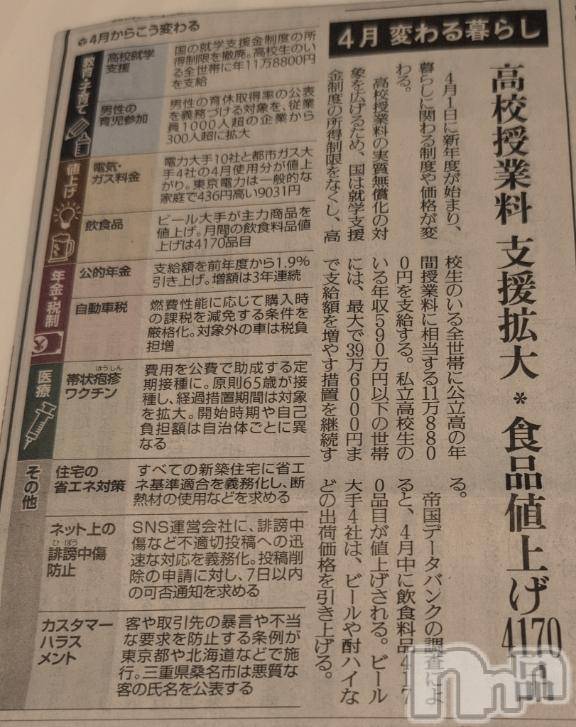 4月 変わる暮らし
高校授業料 支援拡大＊食品値上げ4170品
4月1日に新年度が始まり、
暮らしに関わる制度や価格が変
わる。
高校授業料の実質無償化の対
象を広げるため、国は就学支援
金制度の所得制限をなくし、高
校生のいる全世帯に公立高の年
間授業料に相当する11万880
0円を支給する。私立高校生の
いる年収590万円以下の世帯
には、最大で39万6000円ま
で支給額を増やす措置を継続す
る。
帝国データバンクの調査によ
ると、4月中に飲食料品417
0品目が値上げされる。ビール
大手4社は、ビールや酎ハイな
どの出荷価格を引き上げる。
4月からこう変わる
教育・子育て
高校就学
支援
国の就学支援金制度の所
得制限を撤廃。高校生のい
る全世帯に年11万8800円
を支給
男性の
育児参加
男性の育休取得率の公表
を義務づける対象を、従業
員1000人超の企業から
300人超に拡大
値上げ
電気・
ガス料金
電力大手10社と都市ガス大
手4社の4月使用分が値上
がり。東京電力は一般的な
家庭で436円高い9031円
飲食品
ビール大手が主力商品を
値上げ。月間の飲食料品値
上げは4170品目
年金・税制
公的年金
支給額を前年度から1.9%
引き上げ。増額は3年連続
自動車税
燃費性能に応じて購入時
の課税を減免する条件を
厳格化。対象外の車は税負
担増
医療
帯状疱疹
ほうしん
ワクチン
費用を公費で助成する定
期接種に。原則65歳が接
種し、経過措置期間は対象
を拡大。開始時期や自己
負担額は自治体ごとに異
なる
その他
住宅の
省エネ対策
すべての新築住宅に省エ
ネ基準適合を義務化し、断
熱材の使用などを求める
ネット上の
誹謗中傷
ひぼう
防止
SNS運営会社に、誹謗中
傷など不適切投稿への迅
速な対応を義務化。投稿削
除の申請に対し、7日以内
の可否通知を求める
カスタマー
ハラス
メント
客や取引先の暴言や不当
な要求を防止する条例が
東京都や北海道などで施
行。三重県桑名市は悪質な
客の氏名を公表する